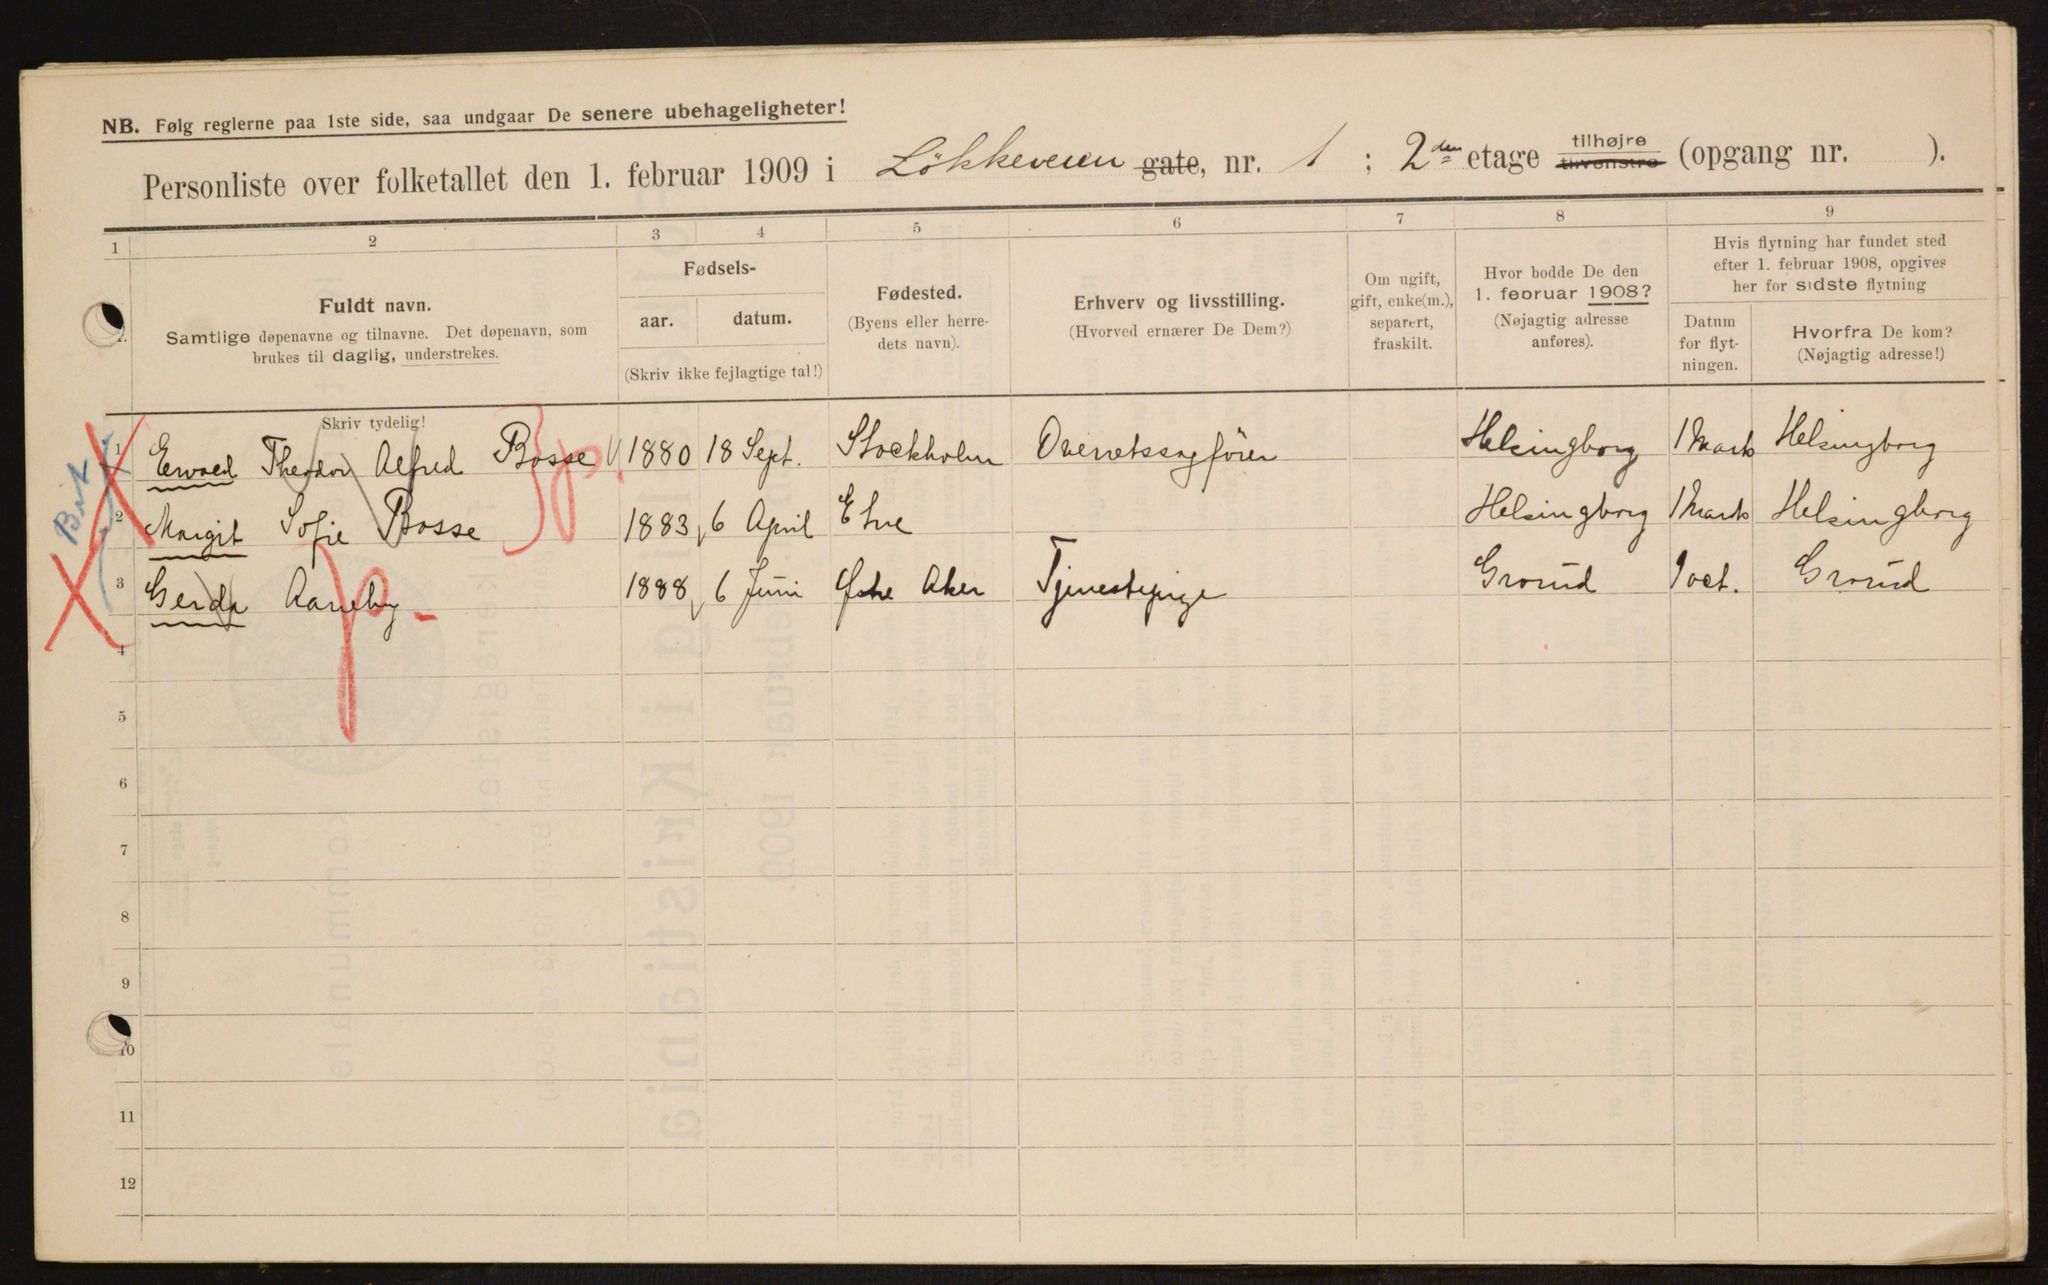 NB. Følg reglerne paa 1ste side, saa undgaar De senere ubehageligheter!
Personliste over folketallet den 1. februar 1909 i Løkkeveien gate, nr. 1 ; 2den etage tilhøjre tilvenstre (opgang nr. ).
1 2 3 4 5 6 7 8 9
Fuldt navn.
Samtlige døpenavne og tilnavne. Det døpenavn, som
brukes til daglig, understrekes.
Skriv tydelig!
Fødsels-
aar. datum.
(Skriv ikke fejlagtige tal!)
Fødested.
(Byens eller herre-
dets navn).
Erhverv og livsstilling.
(Hvorved ernærer De Dem?)
Om ugift,
gift, enke(m.),
separert,
fraskilt.
Hvor bodde De den
1. februar 1908?
(Nøjagtig adresse
anføres).
Hvis flytning har fundet sted
efter 1. februar 1908, opgives
her for sidste flytning
Datum
for flyt-
ningen.
Hvorfra De kom?
(Nøjagtig adresse!)
1 Theodor Alfred Bosse 1880 18 Sept. Stockholm Overretssagfører Helsingborg 1 Marts Helsingborg
2 Margit Sofie Bosse 1883 6 April Helsingborg 1 Marts Helsingborg
3 Gerda Aaneby 1888 6 Juni Østre Aker Tjenestepige Grorud 1 oct. Grorud
4
5
6
7
8
9
10
11
12